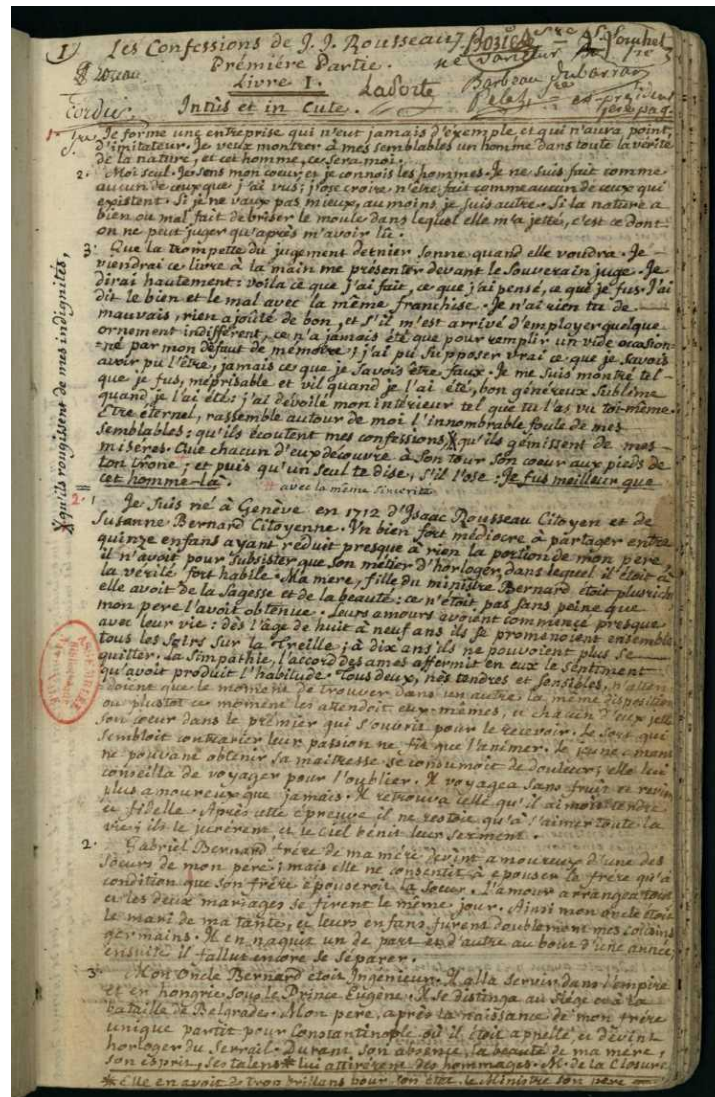 (1) Les Confessions de J. J. Rousseau.
Prémiére Partie.
Livre I.
Intùs et in Cute.
1. Je forme une entreprise qui n'eut jamais d'exemple, et qui n'aura point
d'imitateur. Je veux montrer à mes semblables un homme dans toute la vérité
de la nature, et cet homme, ce sera moi.
2. Moi seul. Je sens mon coeur, et je connois les hommes. Je ne suis fait comme
aucun de ceux que j'ai vus; j'ose croire n'être fait comme aucun de ceux qui
existent. Si je ne vaux pas mieux, au moins je suis autre. Si la nature a
bien ou mal fait de briser le moule dans lequel elle m'a jetté, c'est ce dont
on ne peut juger qu'après m'avoir lû.
3. Que la trompette du jugement dernier sonne quand elle voudra. Je
viendrai ce livre à la main me présenter devant le souverain juge. Je
dirai hautement: voila ce que j'ai fait, ce que j'ai pensé, ce que je fus. J'ai
dit le bien et le mal avec la même franchise. Je n'ai rien tu de
mauvais, rien ajoûté de bon, et s'il m'est arrivé d'employer quelque
ornement indifférent, ce n'a jamais été que pour remplir un vide occasion-
=né par mon défaut de mémoire; j'ai pu supposer vrai ce que je savois
avoir pu l'être, jamais ce que je savois être faux. Je me suis montré tel
que je fus, méprisable et vil quand je l'ai été, bon généreux sublime
quand je l'ai été: j'ai dévoilé mon intérieur tel que tu l'as vu toi-même.
Etre éternel, rassemble autour de moi l'innombrable foule de mes
semblables: qu'ils écoutent mes confessions, qu'ils gémissent de mes
misères. Que chacun d'eux découvre à son tour son coeur aux pieds de
ton trône; et puis qu'un seul te dise, s'il l'ose: Je fus meilleur que
cet homme-là. avec la même sincérité
X qu'ils rougissent de mes indignités,
2. 1 Je suis né à Genève en 1712 d'Isaac Rousseau Citoyen et de
Susanne Bernard Citoyenne. Un bien fort médiocre à partager entre
quinze enfans ayant réduit presque à rien la portion de mon pere
il n'avoit pour subsister que son métier d'horloger, dans lequel il étoit à
la vérité fort habile. Ma mere, fille du ministre Bernard étoit plus rich
elle avoit de la sagesse et de la beauté: ce n'étoit pas sans peine que
mon pere l'avoit obtenue. Leurs amours avoient commencé presque
avec leur vie: dès l'âge de huit à neuf ans ils se promenoient ensemble
tous les soirs sur la Treille; à dix ans ils ne pouvoient plus se
quitter. La simpathie, l'accord des ames affermit en eux le sentiment
qu'avoit produit l'habitude. Tous deux, nés tendres et sensibles, n'atten
doient que le moment de trouver dans un autre la même disposition
ou plustot ce moment les attendoit eux-mêmes, et chacun d'eux jetta
son coeur dans le prémier qui s'ouvrit pour le recevoir. Le sort qui
sembloit contrarier leur passion ne fit que l'animer. Le jeune amant
ne pouvant obtenir sa maitresse se consumoit de douleur; elle lui
conseilla de voyager pour l'oublier. Il voyagea sans fruit et revint
plus amoureux que jamais. Il retrouva celle qu'il aimoit tendre
et fidelle. Après cette épreuve il ne restoit qu'à s'aimer toute la
vie; ils le jurérent, et le ciel bénit leur serment.
2. Gabriel Bernard frère de ma mére devint amoureux d'une des
soeurs de mon pere; mais elle ne consentit à épouser le frère qu'à
condition que son frére épouseroit la soeur. L'amour arrangea tout
et les deux mariages se firent le même jour. Ainsi mon oncle étoit
le mari de ma tante, et leurs enfans furent doublement mes cousins
germains. Il en naquit un de part et d'autre au bout d'une année
ensuite il fallut encore se séparer.
3. Mon Oncle Bernard étoit Ingénieur. Il alla servir dans l'Empire
et en hongrie sous le Prince Eugène. Il se distingua au siège et à la
bataille de Belgrade. Mon pere, après la naissance de mon frére
unique partit pour Constantinople où il étoit appellé, et devint
horloger du Serrail. Durant son absence, la beauté de ma mere,
son esprit, ses talens * lui attirérent des hommages. M. de la Closure
* Elle en avoit de trop brillans pour son état, le Ministre son pere